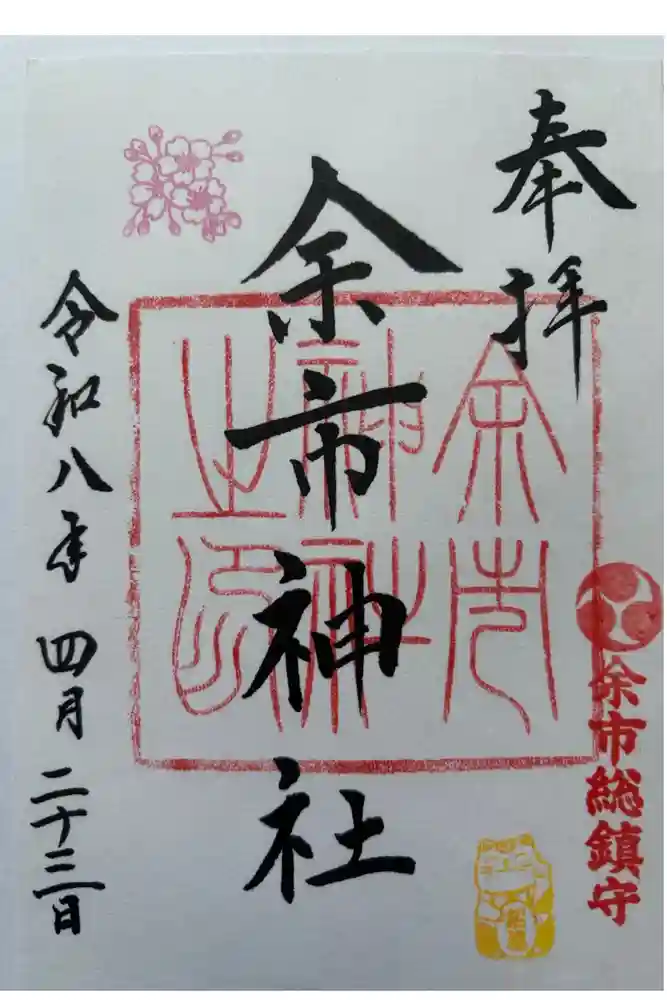 奉拝
余市総鎮守
余市神社
余市神社之印
令和八年四月二十三日